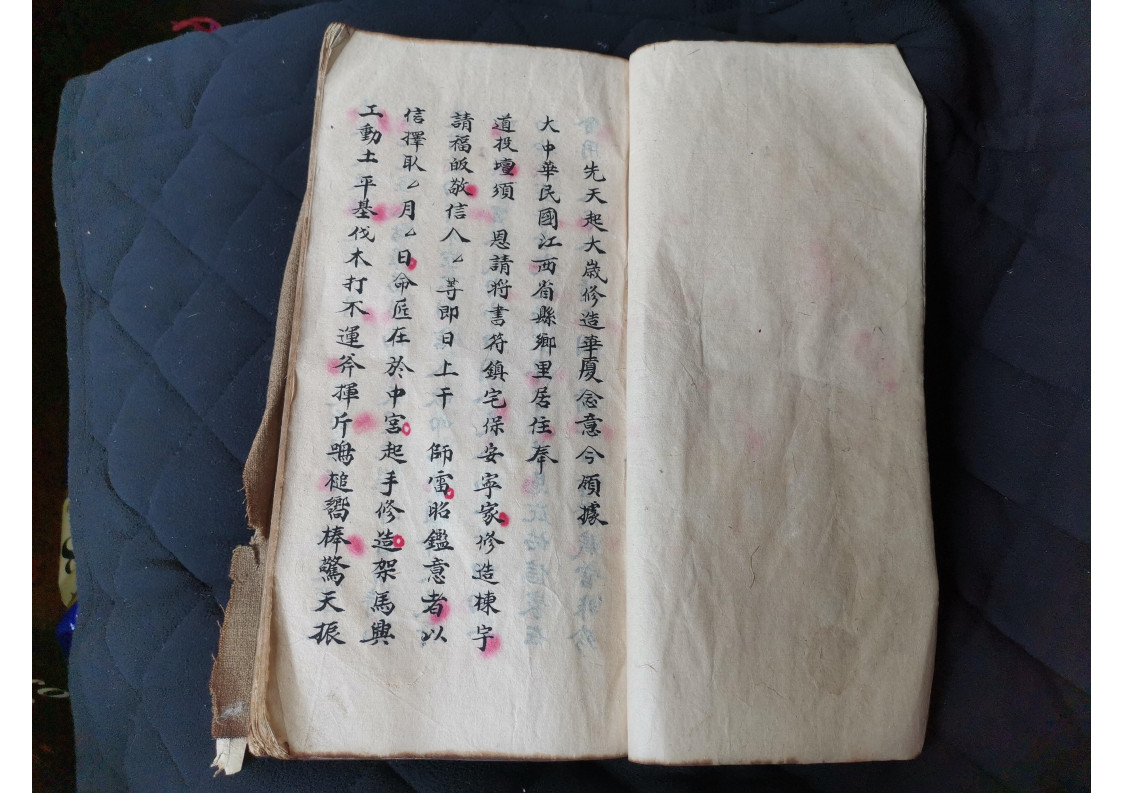 先天起大歲修造華廈念意今頎據
大中華民國江西省縣鄉里居住奉
道投壇須　恩請將書符鎮宅保安寧家修造棟宇
請福皈敬信人厶等即日上干　師雷昭鑑意者以
信擇取厶月厶日命匠在於中宮起手修造架馬興
工動土平基伐木打不運斧揮斤鳴槌嚮棒驚天振